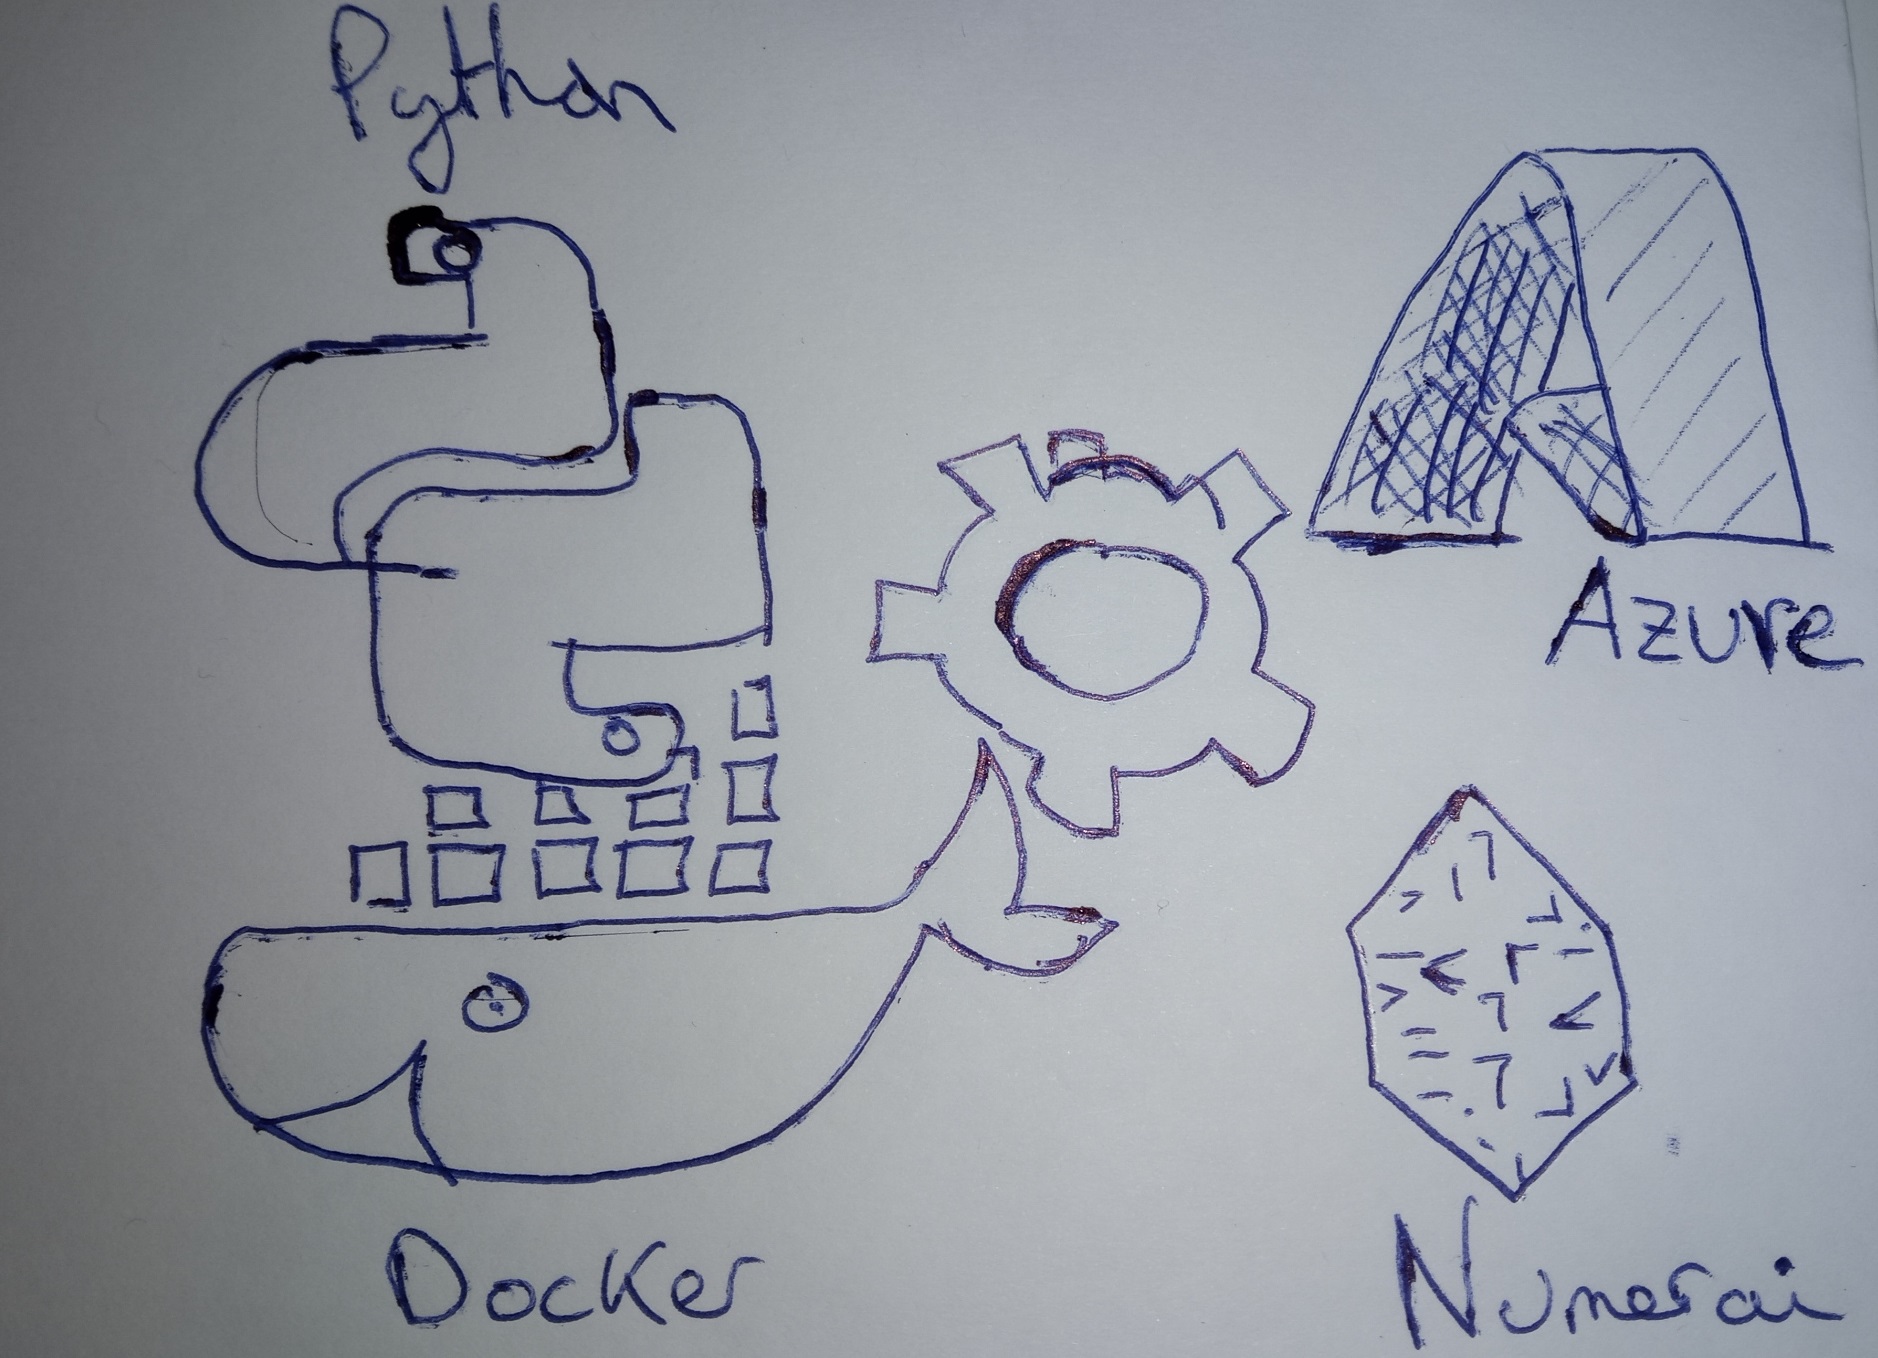 Python
Azure
Docker
Numerai